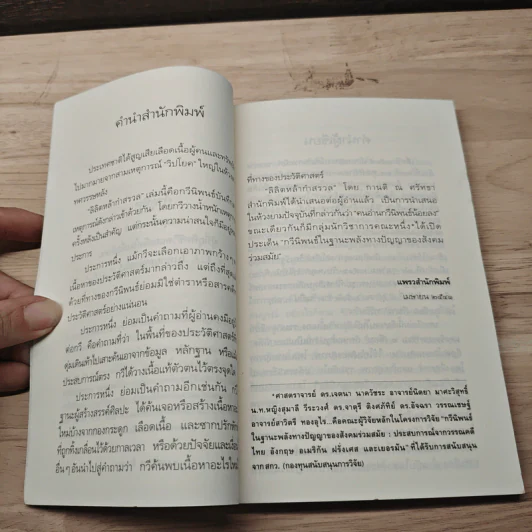 คำนำสำนักพิมพ์
ประเทศชาติได้สูญเสียเลือดเนื้อผู้คนและทรัพย์
ไปมากมายจากสามเหตุการณ์ "วิปโยค" ใหญ่ในห้วง
ทศวรรษหลัง
"ลิลิตหล้ากำสรวล" เล่มนี้คือกวีนิพนธ์บันทึก
เหตุการณ์ดังกล่าวเข้าด้วยกัน โดยกวีวางน้ำหนักเหตุการณ์
ครั้งหลังเป็นสำคัญ แต่กระนั้นความน่าสนใจก็มีอยู่
ประการ
ประการหนึ่ง แม้กวีจะเลือกเอาภาพกว้างๆ
เนื้อหาของประวัติศาสตร์มากล่าวถึง แต่ถึงที่สุด
ด้วยที่ทางของกวีนิพนธ์ย่อมมิใช่ตำราหรือสารคดี
ประวัติศาสตร์อย่างแน่นอน
ประการหนึ่ง ย่อมเป็นคำถามที่ผู้อ่านคงมีอยู่
ต่อกวี คือคำถามที่ว่า ในพื้นที่ของประวัติศาสตร์
ประสบการณ์ตรง กวีได้วางเนื้อแท้ตัวตนไว้ตรงจุดใด
ประการหนึ่ง ย่อมเป็นคำถามอีกเช่นกัน
ฐานะผู้สร้างสรรค์ศิลปะ ได้ค้นเจอหรือสร้างเนื้อหา
ใหม่บ้างจากกองกระดูก เลือดเนื้อ และซากปรักหัก
ที่ถูกทิ้งเกลื่อนไว้ด้วยกาลเวลา หรือด้วยปัจจัยและเงื่อน
อื่นๆ อันนำไปสู่คำถามว่า กวีค้นพบเนื้อหาอะไรใหม่
ที่ทางของประวัติศาสตร์
"ลิลิตหล้ากำสรวล" โดย กานติ ณ ศรัทธา
สำนักพิมพ์ได้นำเสนอต่อผู้อ่านแล้ว เป็นการนำเสนอ
ในห้วงยามปัจจุบันที่กล่าวกันว่า "คนอ่านกวีนิพนธ์น้อยลง"
ขณะเดียวกันก็มีกลุ่มนักวิชาการคณะหนึ่ง* ได้เปิด
ประเด็น "กวีนิพนธ์ในฐานะพลังทางปัญญาของสังคม
ร่วมสมัย"
แพรวสำนักพิมพ์
เมษายน ๒๕๔๒
*ศาสตราจารย์ ดร.เจตนา นาควัชระ อาจารย์นิตยา มาศะวิสุทธิ์
น.ท.หญิงสุมาลี วีระวงศ์ ดร.จาตุรี ติงศภัทิย์ ดร.อัจฉรา วรรณเชษฐ์
อาจารย์สาวิตรี ทองอุไร...คือคณะผู้วิจัยหลักในโครงการวิจัย "กวีนิพนธ์
ในฐานะพลังทางปัญญาของสังคมร่วมสมัย : ประสบการณ์จากวรรณคดี
ไทย อังกฤษ อเมริกัน ฝรั่งเศส และเยอรมัน" ที่ได้รับการสนับสนุน
จาก สกว. (กองทุนสนับสนุนการวิจัย)